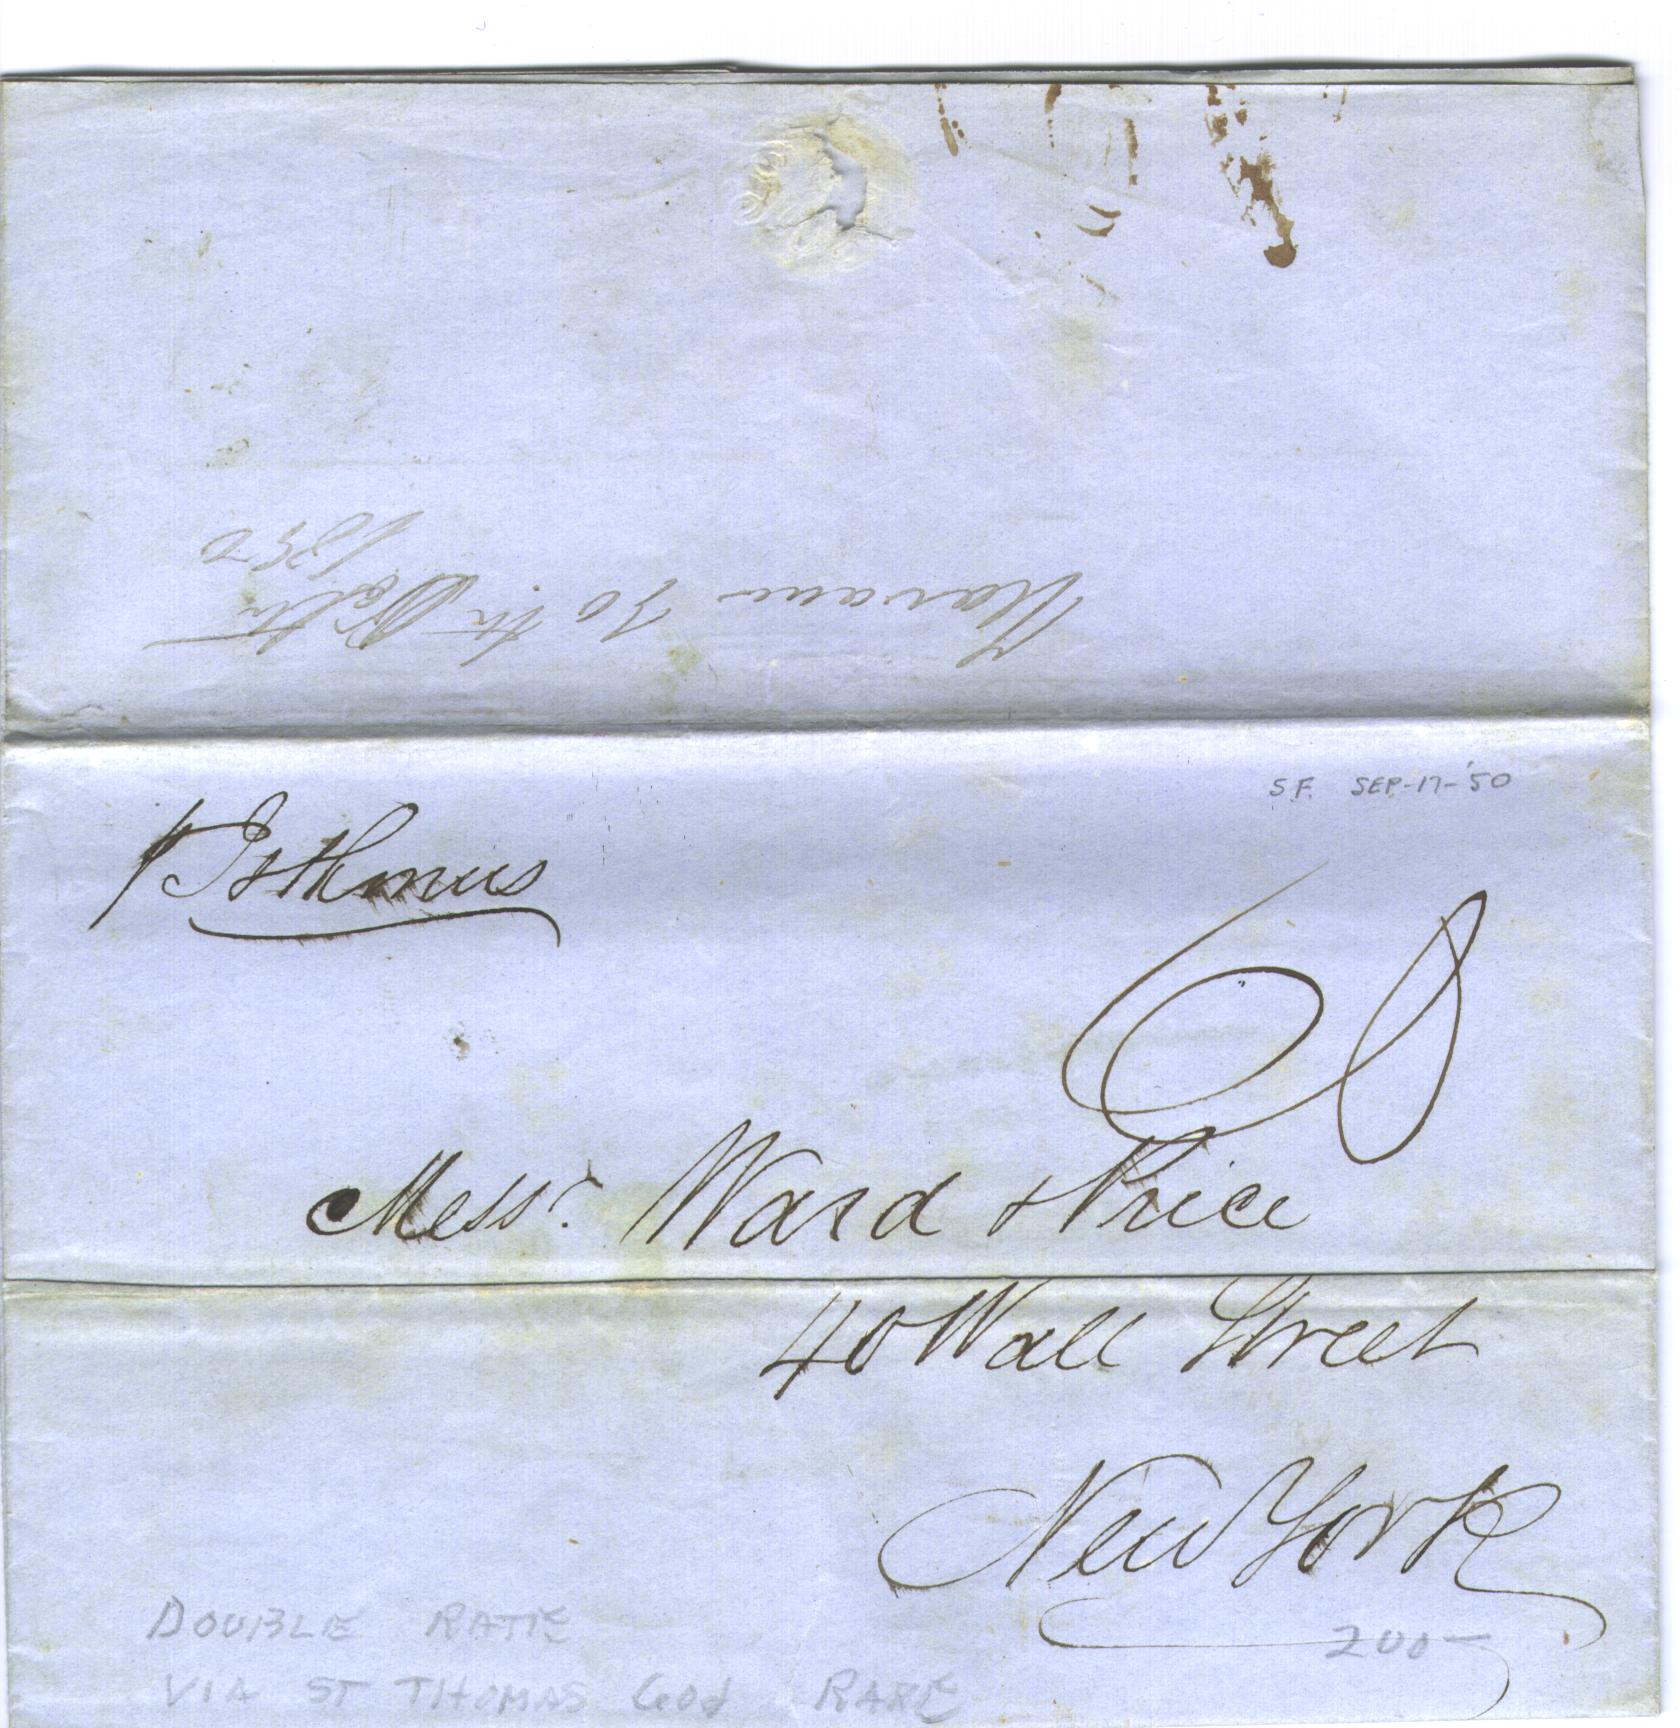 Havana 30th Septr
1850
S.F. SEP-17-'50
p Isthmus
Messr. Ward & Price
40 Wall Street
New York
DOUBLE RATE
200—
VIA ST THOMAS RARE